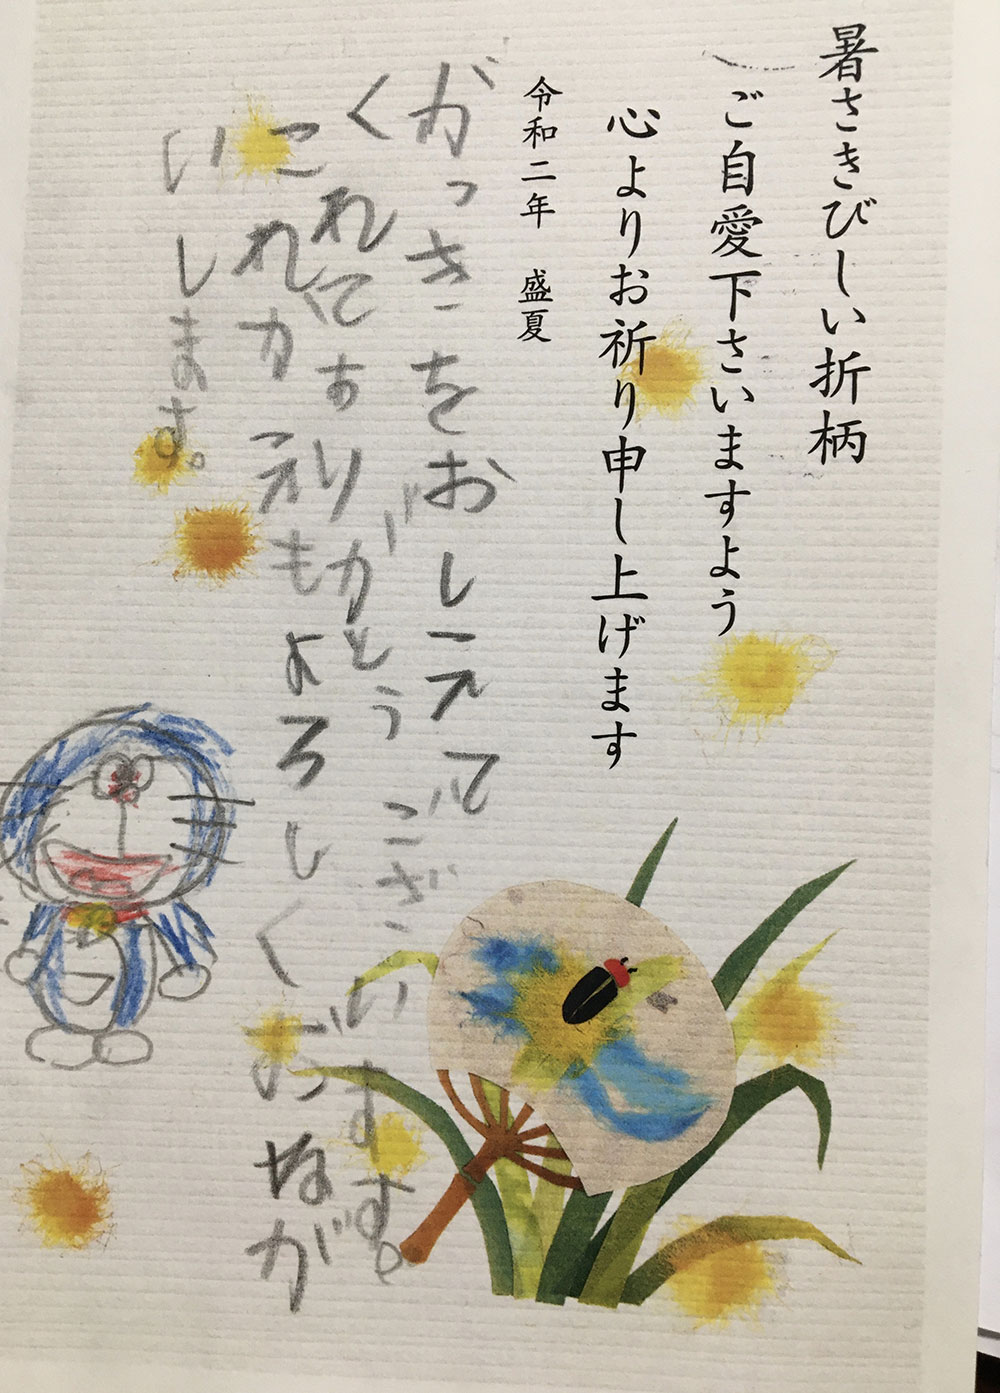 暑さきびしい折柄
ご自愛下さいますよう
心よりお祈り申し上げます
令和二年　盛夏
がっきをおしえて
くれてありがとうございます。
これからもよろしくおねが
いします。